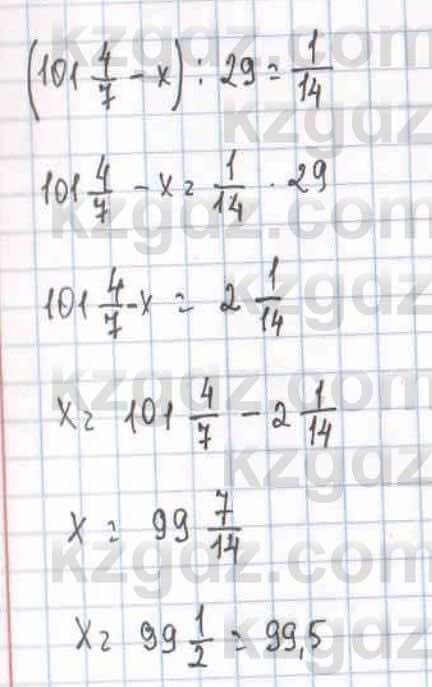 (101 4/7 - x) : 29 = 1/14
101 4/7 - x = 1/14 · 29
101 4/7 - x = 2 1/14
x = 101 4/7 - 2 1/14
x = 99 7/14
x = 99 1/2 = 99,5
kzgdz.com